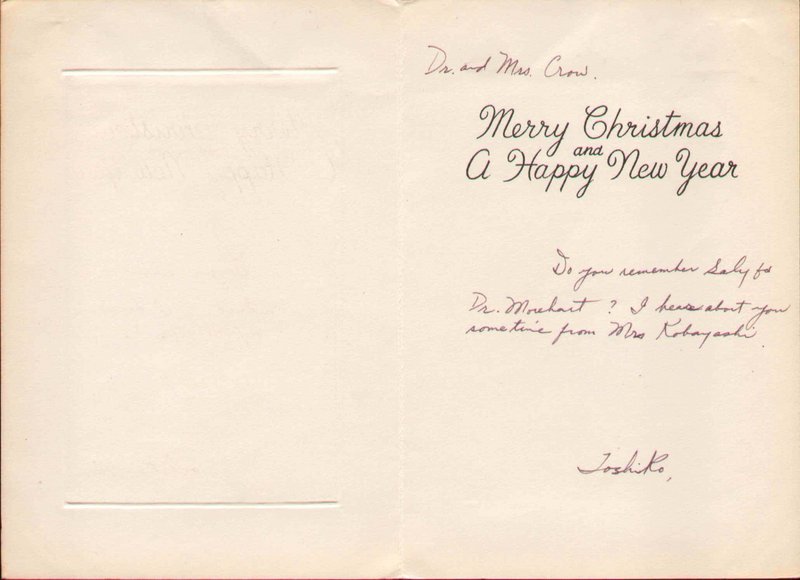 Dr. and Mrs. Crow.
Merry Christmas
and
A Happy New Year
Do you remember
Dr. Morehart ? I hear about you
sometime from Mrs Kobayashi
Toshiko,